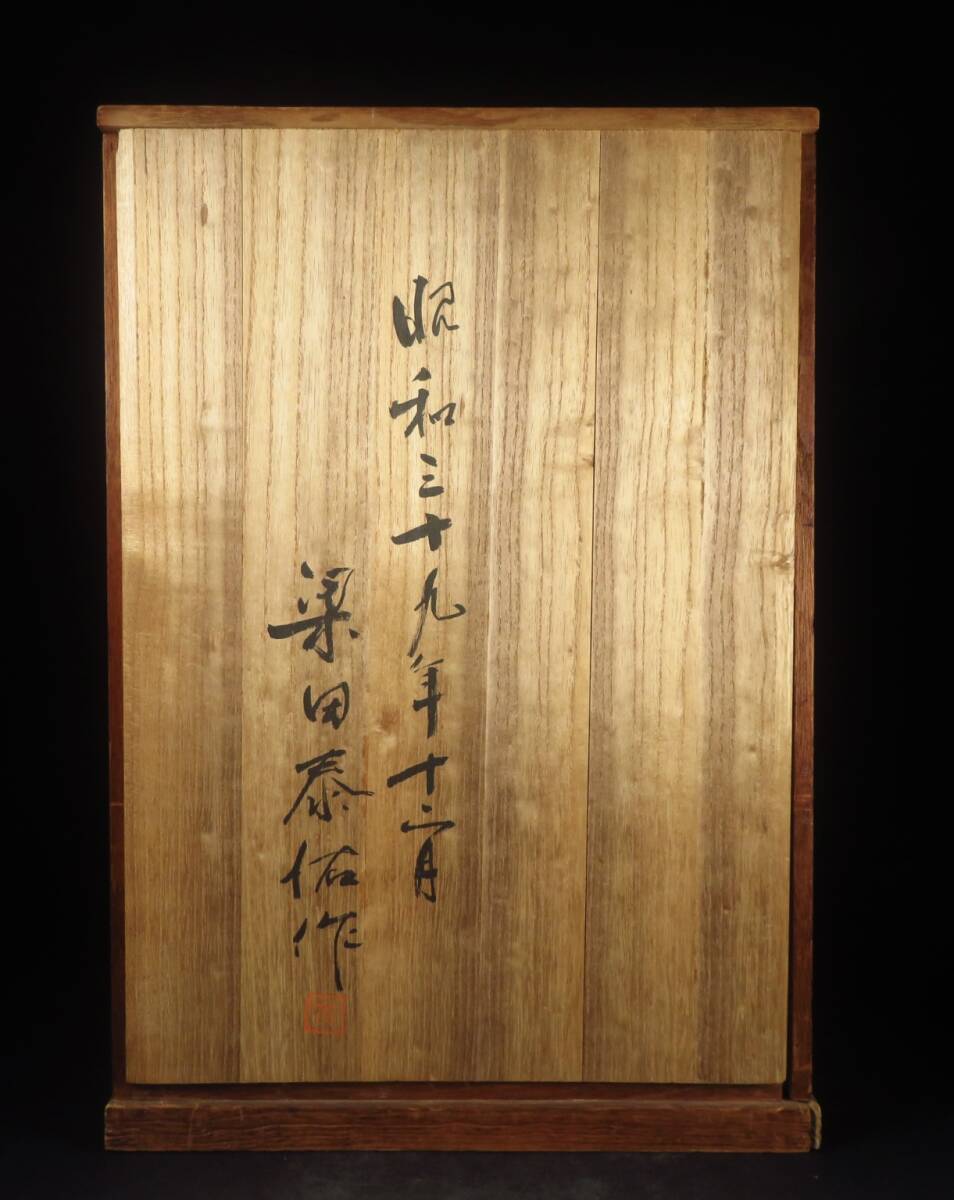 昭和三十九年十二月
梁田泰佑作